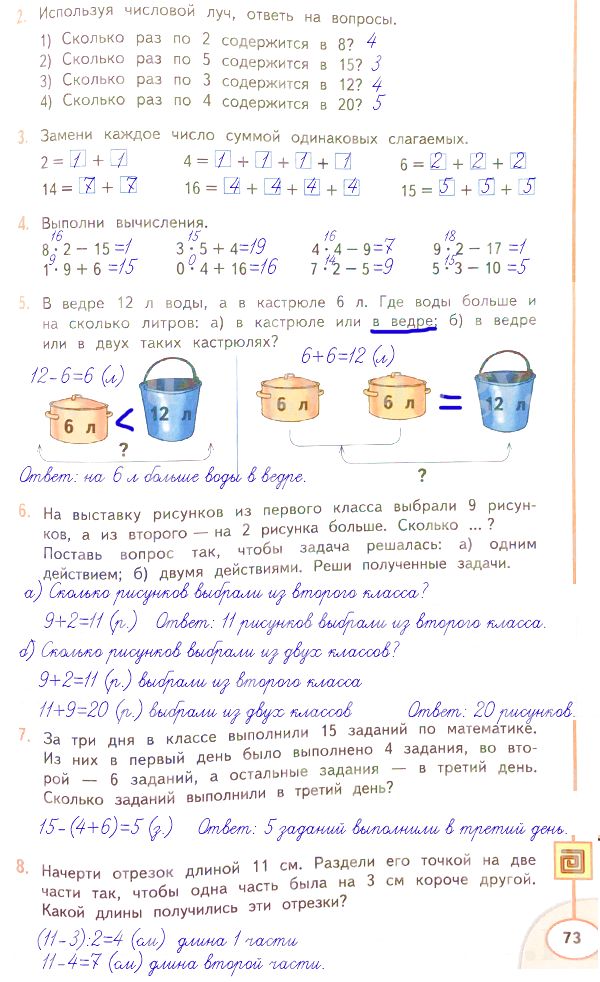 2. Используя числовой луч, ответь на вопросы.
1) Сколько раз по 2 содержится в 8? 4
2) Сколько раз по 5 содержится в 15? 3
3) Сколько раз по 3 содержится в 12? 4
4) Сколько раз по 4 содержится в 20? 5
3. Замени каждое число суммой одинаковых слагаемых.
2 = 1 + 1 4 = 1 + 1 + 1 + 1 6 = 2 + 2 + 2
14 = 7 + 7 16 = 4 + 4 + 4 + 4 15 = 5 + 5 + 5
4. Выполни вычисления.
16 15 16 18
8 · 2 − 15 =1 3 · 5 + 4 =19 4 · 4 − 9 =7 9 · 2 − 17 =1
9 0 14 15
1 · 9 + 6 =15 0 · 4 + 16 =16 7 · 2 − 5 =9 5 · 3 − 10 =5
5. В ведре 12 л воды, а в кастрюле 6 л. Где воды больше и
на сколько литров: а) в кастрюле или в ведре; б) в ведре
или в двух таких кастрюлях?
12-6=6 (л) 6+6=12 (л)
6 л < 12 л 6 л 6 л = 12 л
? ?
Ответ: на 6 л больше воды в ведре.
6. На выставку рисунков из первого класса выбрали 9 рисун-
ков, а из второго — на 2 рисунка больше. Сколько ... ?
Поставь вопрос так, чтобы задача решалась: а) одним
действием; б) двумя действиями. Реши полученные задачи.
а) Сколько рисунков выбрали из второго класса?
9+2=11 (р.) Ответ: 11 рисунков выбрали из второго класса.
б) Сколько рисунков выбрали из двух классов?
9+2=11 (р.) выбрали из второго класса
11+9=20 (р.) выбрали из двух классов Ответ: 20 рисунков.
7. За три дня в классе выполнили 15 заданий по математике.
Из них в первый день было выполнено 4 задания, во вто-
рой — 6 заданий, а остальные задания — в третий день.
Сколько заданий выполнили в третий день?
15-(4+6)=5 (з.) Ответ: 5 заданий выполнили в третий день.
8. Начерти отрезок длиной 11 см. Раздели его точкой на две
части так, чтобы одна часть была на 3 см короче другой.
Какой длины получились эти отрезки?
(11-3):2=4 (см) длина 1 части
11-4=7 (см) длина второй части.
73